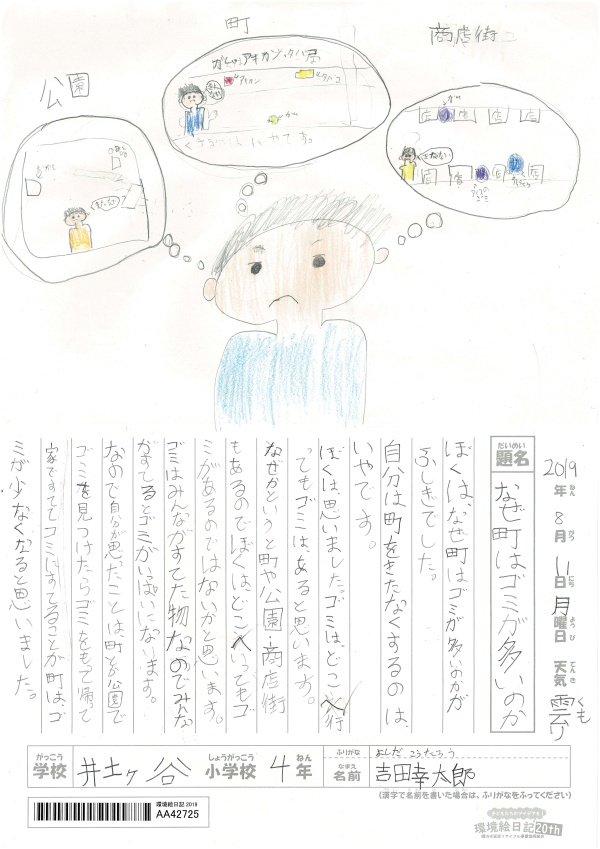 町
商店街
公園
アキカン
タバコ
きたない
店
店
店
店
店
店
店
くさるのはいやです。
2019年8月11日月曜日 天気 雲り
ねん
がつ
にち
ようび
てんき
くも
だいめい
題名
なぜ町はゴミが多いのか
ぼくはなぜ町はゴミが多いのかが
ふしぎでした。
自分は町をきたなくするのは、
いやです。
ぼくは、思いました。ゴミは、どこへ行
ってもゴミは、あると思います。
なぜかというと町や公園・商店街
もあるのでぼくは、どこへいってもゴ
ミがあるのではないかと思います。
ゴミはみんながすてた物なのでみんな
がすてるとゴミがいっぱいになります。
なので自分が思ったことは町や公園で
ゴミを見つけたらゴミをもって帰って
家ですててゴミにすてることが町は、ゴ
ミが少なくなると思いました。
がっこう
学校
井土ヶ谷
しょうがっこう
小学校
4
ねん
年
ふりがな
よしだ こうたろう
なまえ
名前
吉田幸太郎
(漢字で名前を書いた場合は、ふりがなをふってください)
環境絵日記 2019
AA42725
環境絵日記 20th